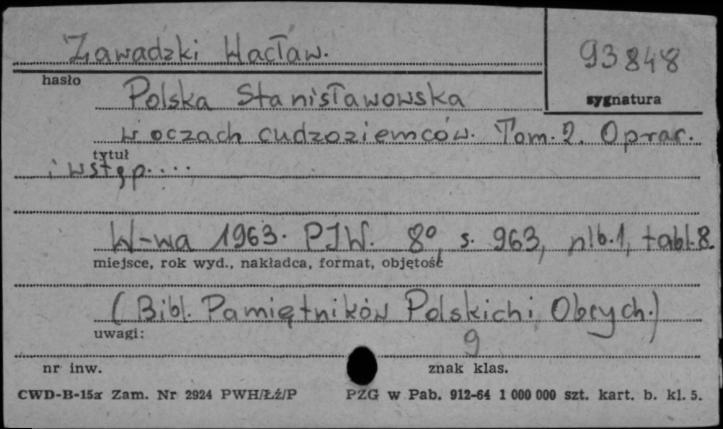 Zawadzki Wacław.
93848
hasło
sygnatura
Polska Stanisławowska
w oczach cudzoziemców. Tom. 2. Oprac.
tytuł
i wstęp....
W-wa 1963. PIW. 8º, s. 963, nlb.1, tabl.8.
miejsce, rok wyd., nakładca, format, objętość
(Bibl. Pamiętników Polskich i Obcych.)
uwagi:
9
nr inw.
znak klas.
CWD-B-15a Zam. Nr 2924 PWH/Łź/P
PZG w Pab. 912-64 1 000 000 szt. kart. b. kl. 5.